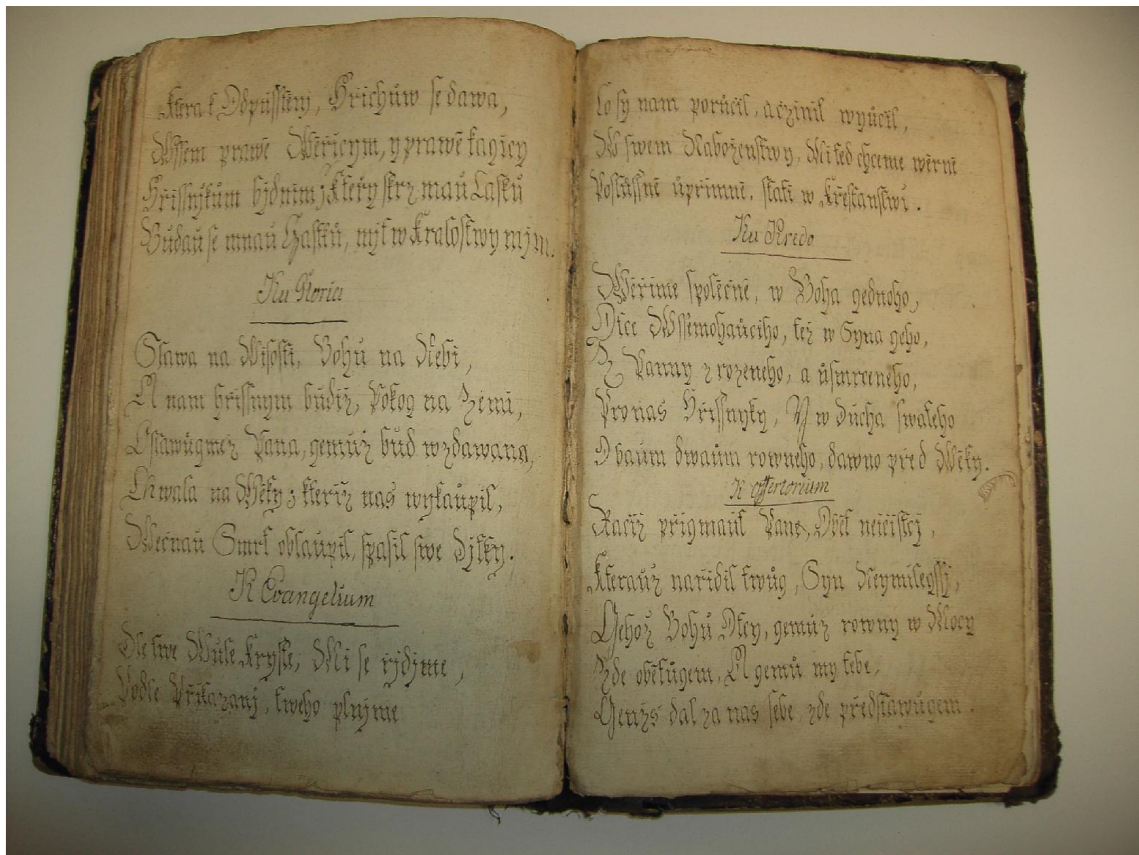 Ktera k Odpusstěnj, Hřichůw se dawa,
Wssem prawě Wěřicym, y prawě kagicy
Hřissnjkům bjdnim, Kteřy skrz mau Lasku
Budau se mnau Učastků, nyť w Kralostwy mym.
Ku Gloria
Slawa na Wisosti, Bohu na Nebi,
A nam hrissnym budiž, Pokog na Zemi,
Cstiwůgmež Pana, gemuž bud wzdawana,
Chwala na Wěky, kteřiž nas wykaupil,
Wečnau Smrt oblaupil, spasil swe Djtky.
K Evangelium
Dle twe Wule Kryste, Mi se řjdjme,
Podle Přikazanj, tweho plnjme
Co sy nam poručil, a czinil wyučil,
W swem Naboženstwy, Mi ted chceme wěrně
Poslussně upřimně, stati w Křestanstwi.
Ku Kredo
Wěřime společně, w Boha gednoho,
Otce Wssemohauciho, též w Syna geho,
Z Panny zrozeneho, a usmrceneho,
Pro nas Hřissnyky, Y w Ducha swateho
Obaum dwaum rowneho, dawno před Wěky.
K offertorium
Račiž přigmaut Pane, Obět neičistčj,
Kterauž nařidil twůg, Syn Neymilegssj,
Gehož Bohu Otcy, gemuž rowny w Mocy
Zde obětůgem, A gemů my tebe,
Genžs dal za nas sebe, zde předstawůgem.